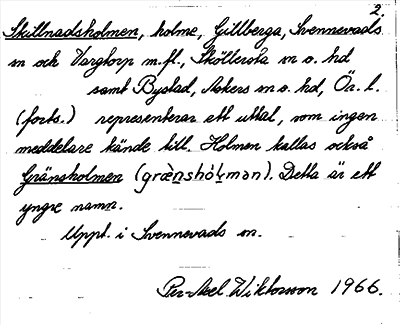 2.
Skillnadsholmen, holme, Gillberga, Svennevads
sn och Vargtorp m.fl., Sköllersta sn o. hd
samt Bystad, Askers sn o. hd, Ör. l.
(forts.) representerar ett uttal, som ingen
meddelare kände till. Holmen kallas också
Gränsholmen (græ̀nshól̥mən). Detta är ett
yngre namn.
Uppt. i Svennevads sn.
Per-Axel Wiktorsson 1966.